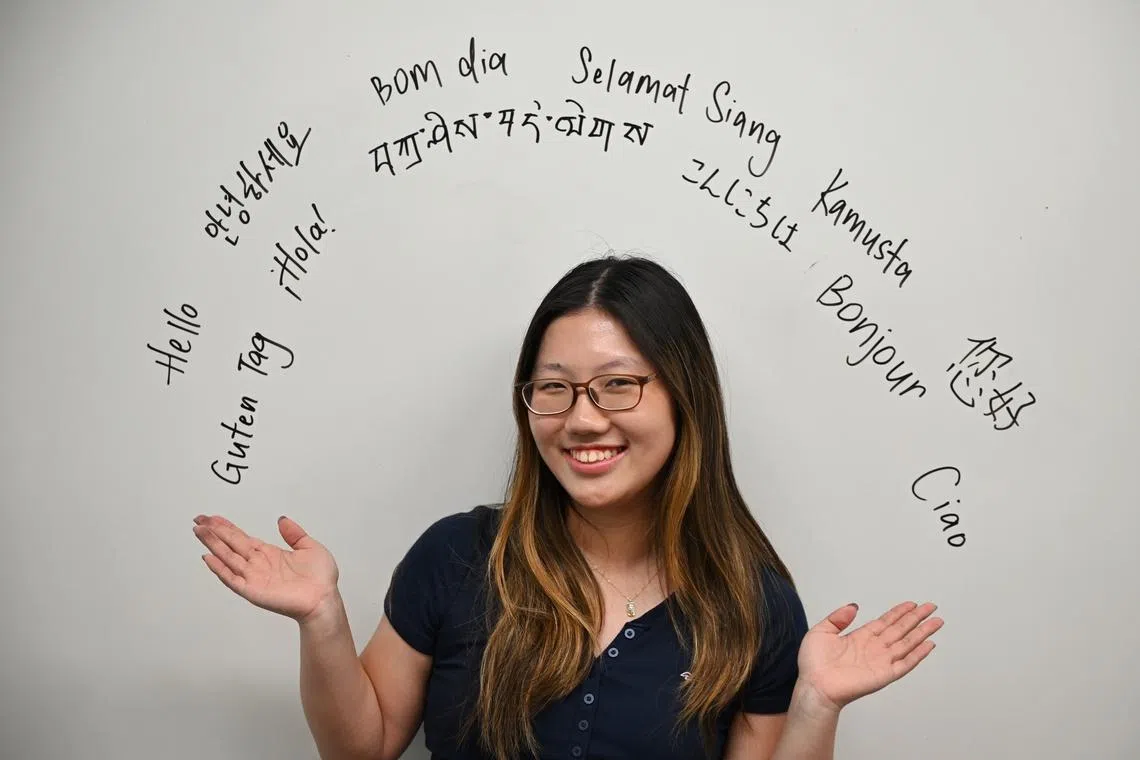 Hello
안녕하세요
Bom dia
Selamat Siang
Kamusta
您好
Guten Tag
¡Hola!
བཀྲ་ཤིས་བདེ་ལེགས
こんにちは
Bonjour
Ciao